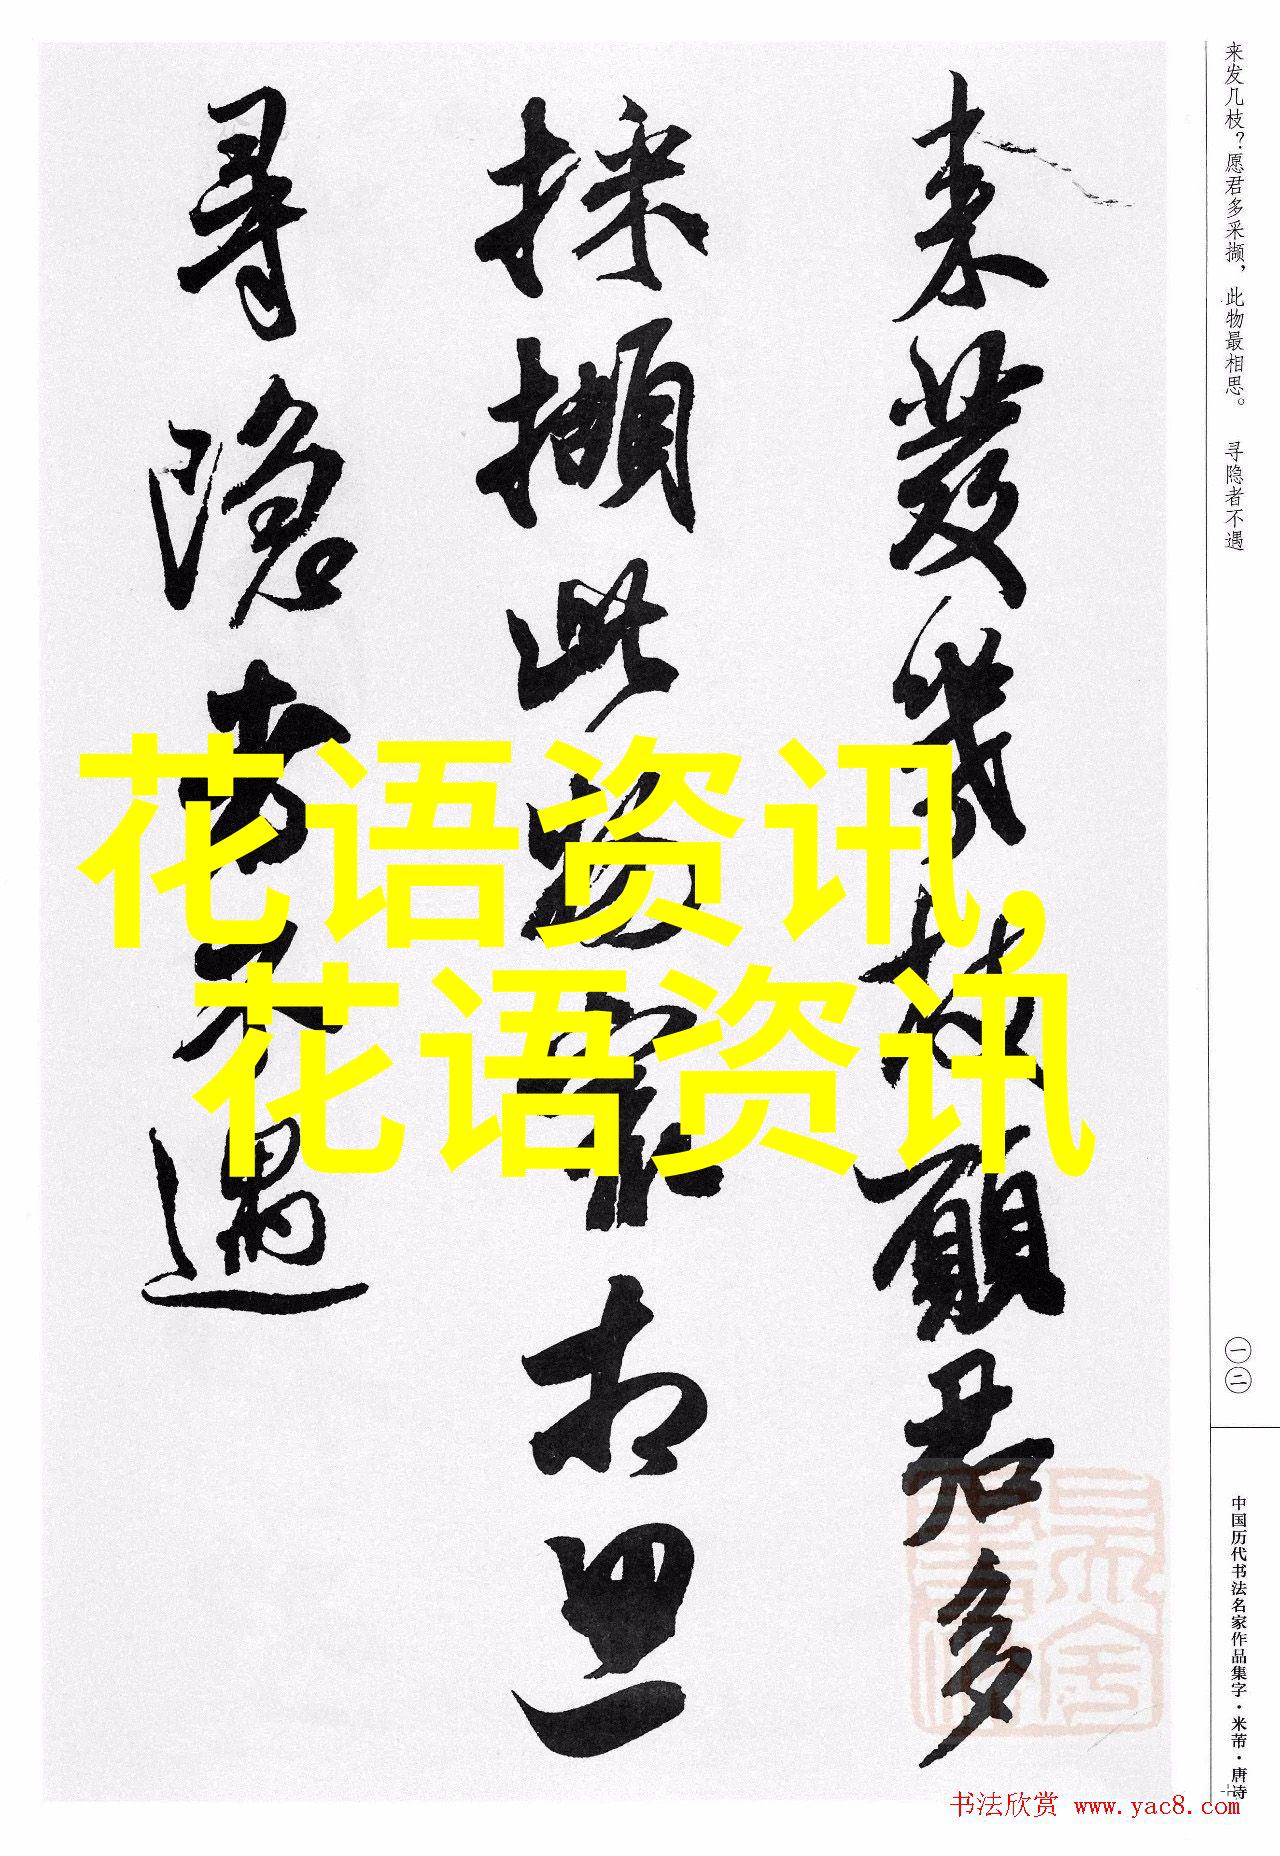 来發幾枝願君多
採擷此物最相思
尋隱者不遇
来发几枝？愿君多采撷，此物最相思。 寻隐者不遇
一二
中国历代书法名家作品集字·米芾·唐诗
花语资讯,
花语资讯
书法欣赏 www.yac8.com